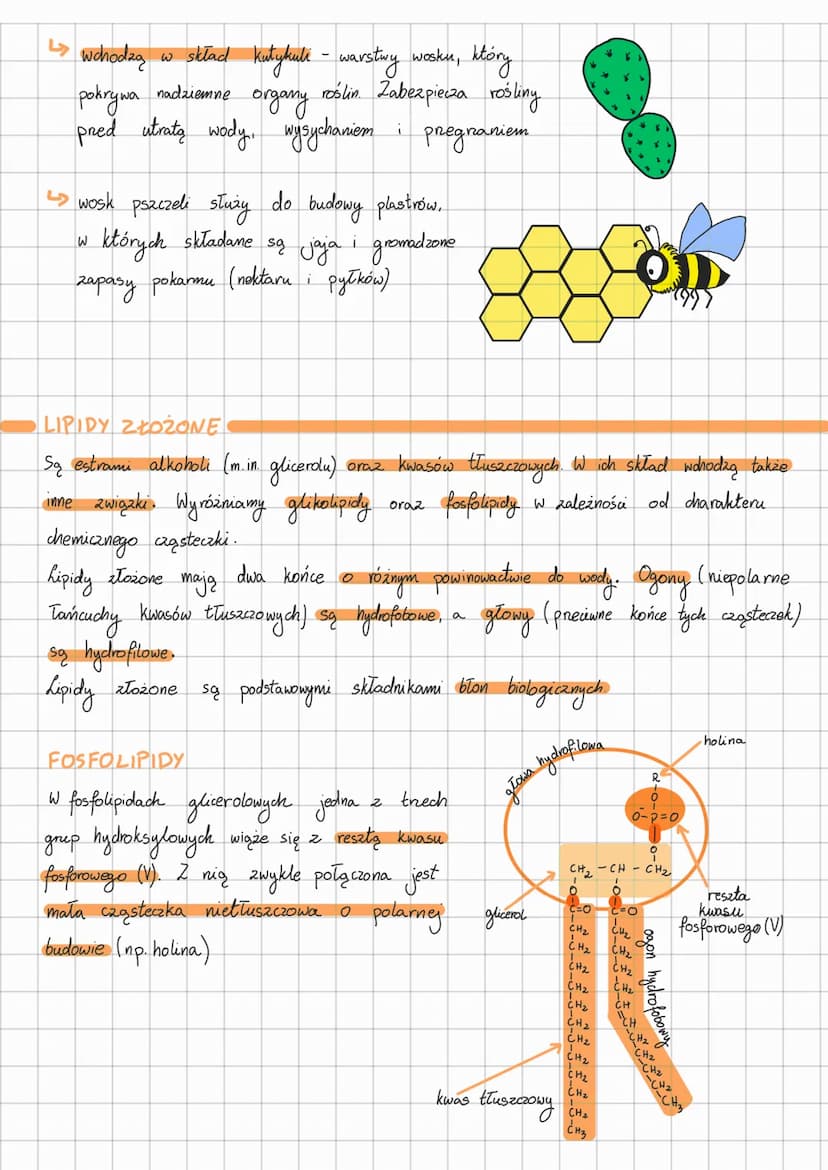 ↳ wchodzą w skład kutykuli - warstwy wosku, który
pokrywa nadziemne organy roślin. Zabezpiecza rośliny
przed utratą wody, wysychaniem i przegrzaniem
↳ wosk pszczeli służy do budowy plastrów,
w których składane są jaja i gromadzone
zapasy pokarmu (nektaru i pyłków)
LIPIDY ZŁOŻONE
Są estrami alkoholi (m.in. glicerolu) oraz kwasów tłuszczowych. W ich skład wchodzą także
inne związki. Wyróżniamy glikolipidy oraz fosfolipidy w zależności od charakteru
chemicznego cząsteczki.
Lipidy złożone mają dwa końce o różnym powinowactwie do wody. Ogony (niepolarne
łańcuchy kwasów tłuszczowych) są hydrofobowe, a głowy (przeciwne końce tych cząsteczek)
są hydrofilowe.
Lipidy złożone są podstawowymi składnikami błon biologicznych
FOSFOLIPIDY
W fosfolipidach glicerolowych jedna z trzech
grup hydroksylowych wiąże się z resztą kwasu
fosforowego (V). Z nią zwykle połączona jest
mała cząsteczka nietłuszczowa o polarnej
budowie (np. holina)
głowa hydrofilowa
holina
R
O
O⁻-P=O
O
CH₂ - CH - CH₂
O O
C=O C=O
glicerol
reszta
kwasu
fosforowego (V)
ogon hydrofobowy
CH₂
CH₂
CH₂
CH₂
CH₂
CH₂
CH₂
CH₂
CH₂
CH₂
CH₂
CH₃
CH₂
CH₂
CH₂
CH₂
CH
CH
CH₂
CH₂
CH₂
CH₂
CH₃
kwas tłuszczowy